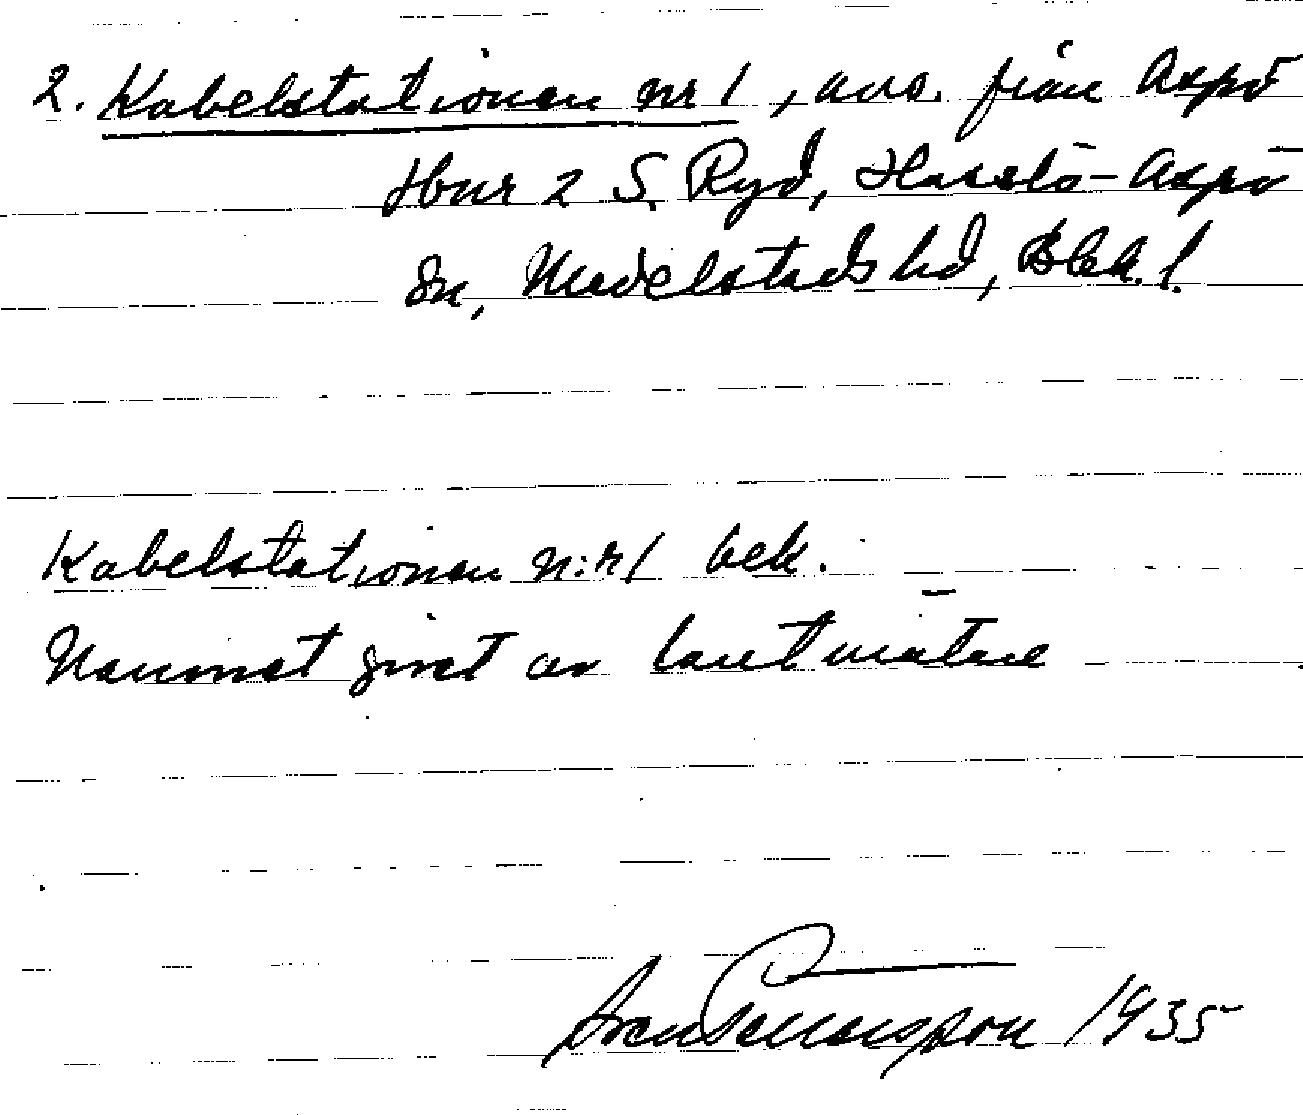 2. Kabelstationen nr 1, avs. från Aspö
2 S. Ryd, Hasslö-Aspö
sn, Medelstads hd, Blek. l.
Kabelstationen n:r 1 bek.
Namnet givet av lantmätare
Sven Pettersson 1935